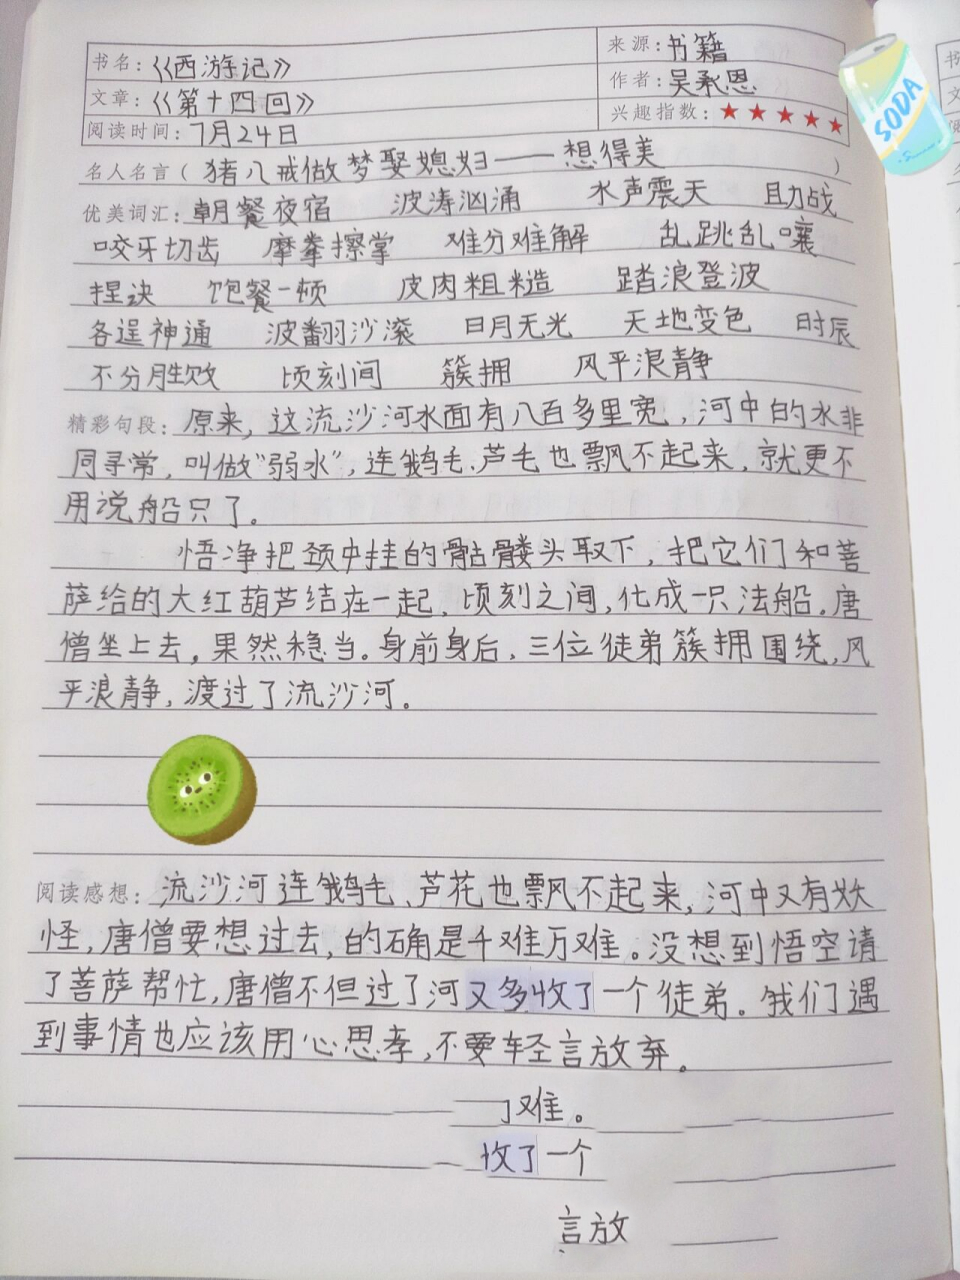 书名：《西游记》
来源：书籍
文章：《第十四回》
作者：吴承恩
阅读时间：7月24日
兴趣指数：★★★★★
SODA
名人名言（猪八戒做梦娶媳妇——想得美）
优美词汇：朝餐夜宿 波涛汹涌 水声震天 助战
咬牙切齿 摩拳擦掌 难分难解 乱跳乱嚷
捏诀 饱餐一顿 皮肉粗糙 踏浪登波
各逞神通 波翻沙滚 日月无光 天地变色 时辰
不分胜败 顷刻间 簇拥 风平浪静
精彩句段：原来，这流沙河水面有八百多里宽，河中的水非
同寻常，叫做“弱水”，连鹅毛、芦毛也飘不起来，就更不
用说船只了。
悟净把颈中挂的骷髅头取下，把它们和菩
萨给的大红葫芦结在一起，顷刻之间，化成一只法船。唐
僧坐上去，果然稳当。身前身后，三位徒弟簇拥围绕，风
平浪静，渡过了流沙河。
阅读感想：流沙河连鹅毛、芦花也飘不起来，河中又有妖
怪，唐僧要想过去，的确是千难万难。没想到悟空请
了菩萨帮忙，唐僧不但过了河又多收了一个徒弟。我们遇
到事情也应该用心思考，不要轻言放弃。
难。
收了一个
言放